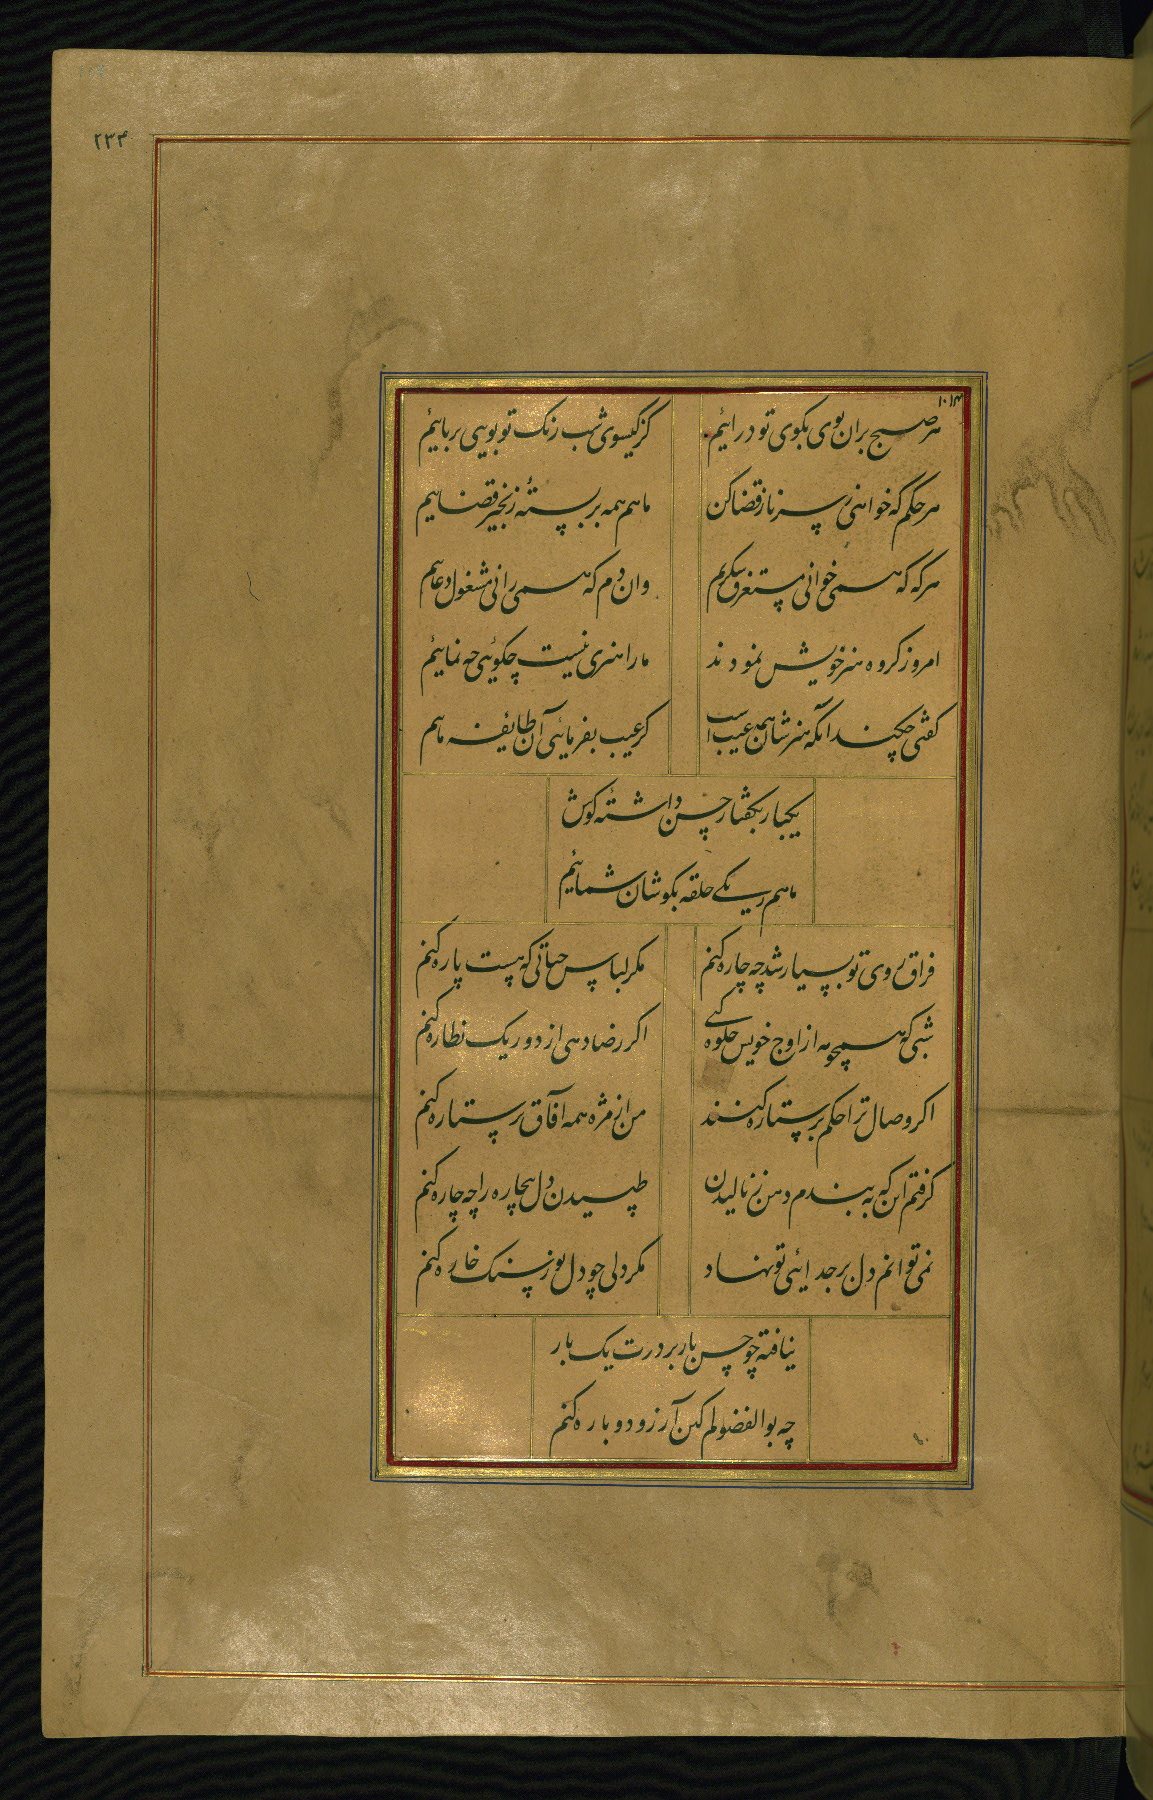 ۲۳۴
۱۰۱۴
هر صبح بران بوی بکوی تو درائیم کز کیسوی شب رنک تو بویی بربائیم
هر حکم که خواهی بسر ما ز قضا کن ما هم همه بر بستهٔ زنجیر قضاییم
هر که که همی خوانی مستغرق شکریم وان دم که همی رانی مشغول دعاییم
امروز کروه هنر خویش نمودند ما را هنری نیست چکوئیی چه نمائیم
کفتی چکنید آنکه هنرشان همه عیب است کر عیب بفرمائیی آن طایفه ماییم
یکبار بکفتار حسن داشتهٔ کوش
ما هم ز یکی حلقه بکوشان شمائیم
فراق روی تو بسیار شد چه چاره کنم مکر لباس حیاتی که هست پاره کنم
شبی که همچو مه از اوج خویش جلوه کنی اکر رضا دهی از دور یک نظاره کنم
اکر وصال ترا حکم بر ستاره کنند من از مژه همه آفاق پر ستاره کنم
کرفتم این که به بندم دهن ز نالیدن طپیدن دل بیچاره را چه چاره کنم
نمی توانم دل بر جدائیی تو نهاد مکر دلی چو دل تو ز سنک خاره کنم
نیافته چو حسن بار بر درت یک بار
چه بوالفضولم کین آرزو دوباره کنم